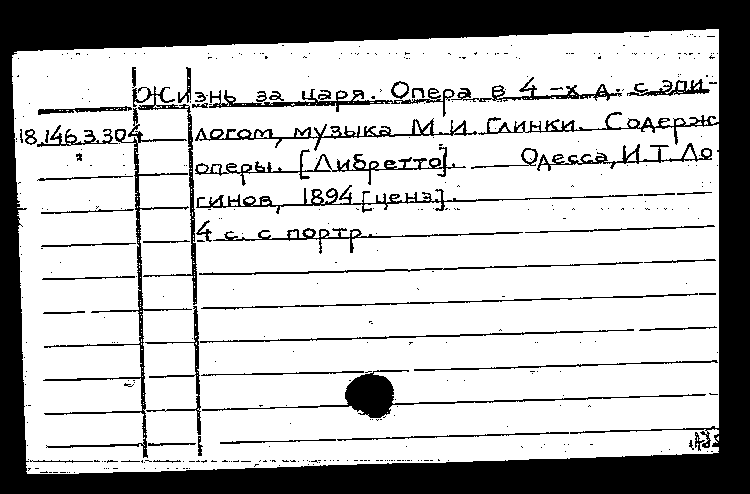 Жизнь за царя. Опера в 4-х д. с эпи-
18.146.3.304 логом, музыка М.И. Глинки. Содерж
оперы. [Либретто]. Одесса, И.Т. Ло
гинов, 1894 [ценз.].
4 с. с портр.